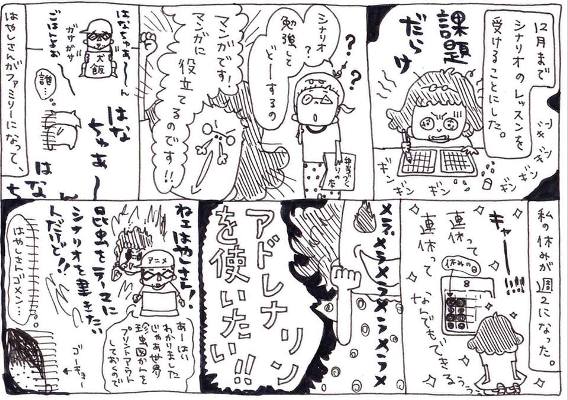 12月まで
シナリオのレッスンを
受けることにした。
課題
だらけ
ギン
ギン
ギン
ギン
ギン
シナリオ
？
勉強して
どーするの
？
？
？
マンガです！
マンガに
役立てるのです!!
はなちゃあ〜ん
ごはんよぉ
ガサガサ
犬飯
誰…。
はな
ちゃあ〜
はな
はやしさんがファミリーになって、
私の休みが週2になった。
キャー!!!!
連休って
連休って
なんでもできるぅぅぅ
休みの日
8
メラメラメラメラメラメラ
アドレナリン
を使いたい!!
ねェはやさん!
昆虫をテーマに
シナリオを書きたい
んだけど!!
アニメ
あーはい
わかりました
じゃあ世界
珍虫図かんを
プリントアウト
しておくので
はやしさんゴメン…。
ゴーキュー